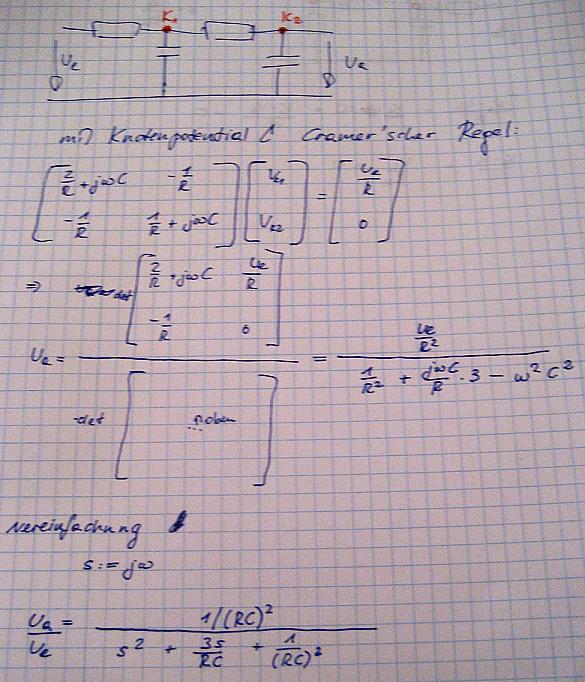 K₁ K₂
Ue Ua
mit Knotenpotential & Cramer'scher Regel:
[ 2/R + jωC   -1/R ; -1/R   1/R + jωC ] [ UK1 ; UK2 ] = [ Ue/R ; 0 ]
⇒ det [ 2/R + jωC   Ue/R ; -1/R   0 ]
Ua = ――― = (Ue/R²) / (1/R² + jωC/R · 3 - ω²C²)
det [ n oben ]
Vereinfachung
s := jω
Ua/Ue = (1/(RC)²) / (s² + 3s/RC + 1/(RC)²)